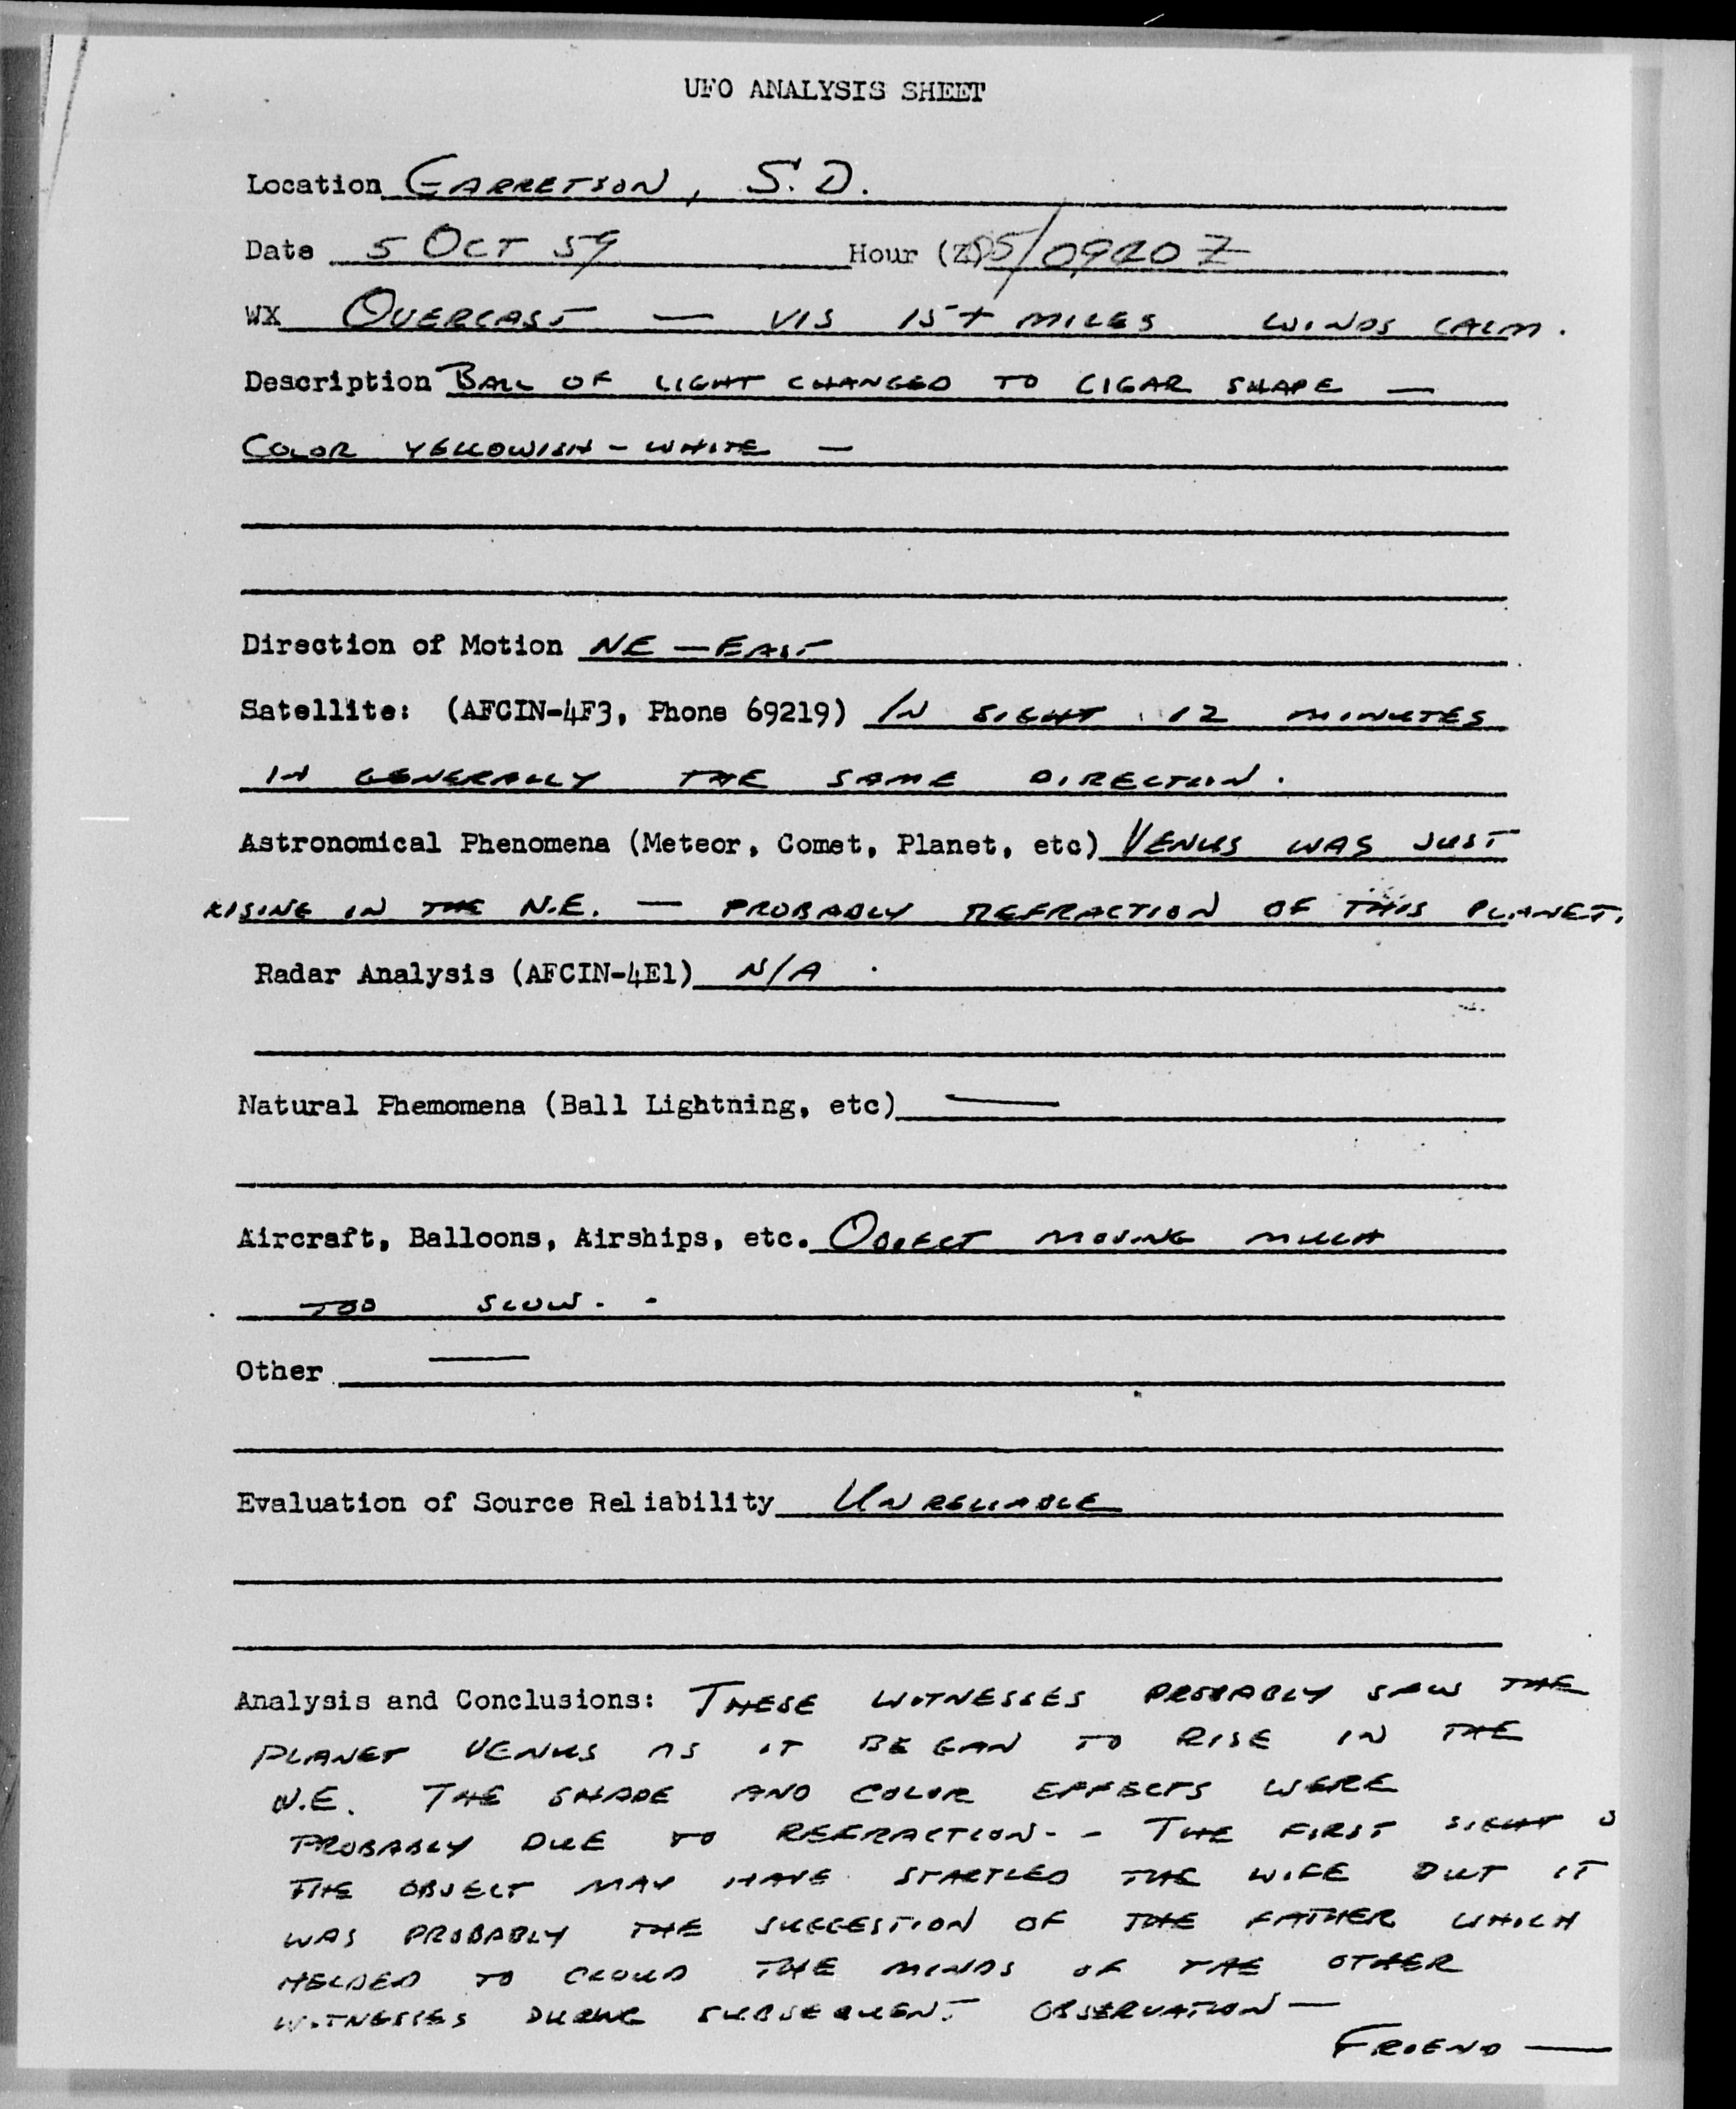 UFO ANALYSIS SHEET
Location GARRETSON, S.D.
Date 5 OCT 59 Hour (Z) 05/0940Z
WX OVERCAST — VIS 15+ MILES WINDS CALM.
Description BALL OF LIGHT CHANGED TO CIGAR SHAPE —
COLOR YELLOWISH - WHITE —
Direction of Motion NE — EAST
Satellite: (AFCIN-4F3, Phone 69219) IN SIGHT 12 MINUTES
IN GENERALLY THE SAME DIRECTION.
Astronomical Phenomena (Meteor, Comet, Planet, etc) VENUS WAS JUST
RISING IN THE N.E. — PROBABLY REFRACTION OF THIS PLANET.
Radar Analysis (AFCIN-4E1) N/A
Natural Phemomena (Ball Lightning, etc) —
Aircraft, Balloons, Airships, etc. OBJECT MOVING MUCH
TOO SLOW.
Other —
Evaluation of Source Reliability UNRELIABLE
Analysis and Conclusions: THESE WITNESSES PROBABLY SAW THE
PLANET VENUS AS IT BEGAN TO RISE IN THE
N.E. THE SHAPE AND COLOR EFFECTS WERE
PROBABLY DUE TO REFRACTION. - THE FIRST SIGHT O
THE OBJECT MAY HAVE STARTLED THE WIFE BUT IT
WAS PROBABLY THE SUGGESTION OF THE FATHER WHICH
HELPED TO CLOUD THE MINDS OF THE OTHER
WITNESSES DURING SUBSEQUENT OBSERVATION —
FRIEND —